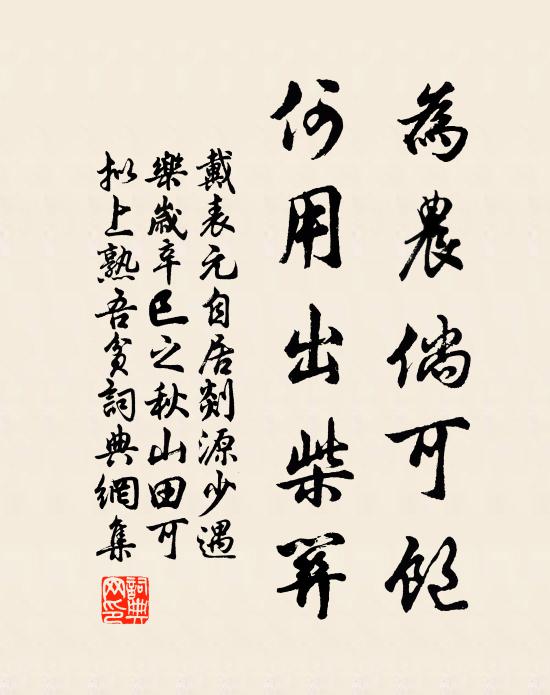 為農倘可飽
何用出柴關
戴表元自居剡源少遇
樂歲辛巳之秋山田可
拟上熟吾貧詞典網集
詞典网印